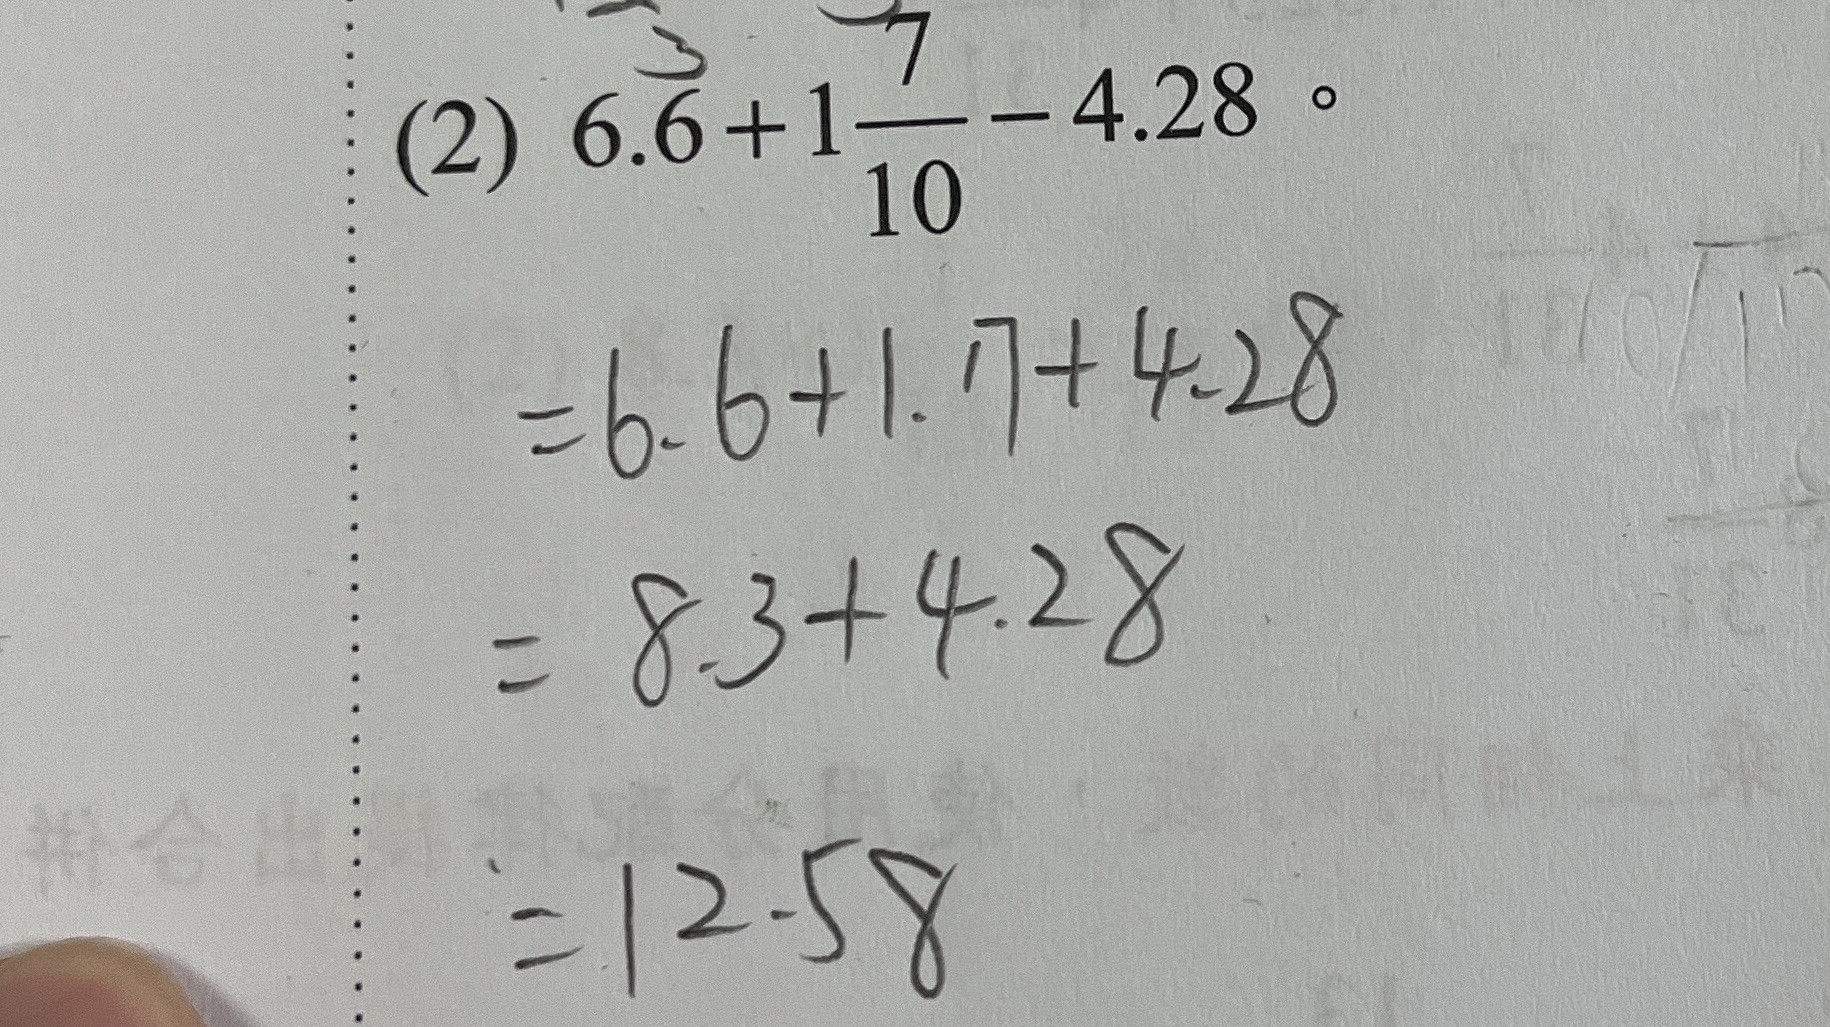 3
(2) 6.6+1 7/10 − 4.28。
=6.6+1.7+4.28
= 8.3+4.28
=12.58